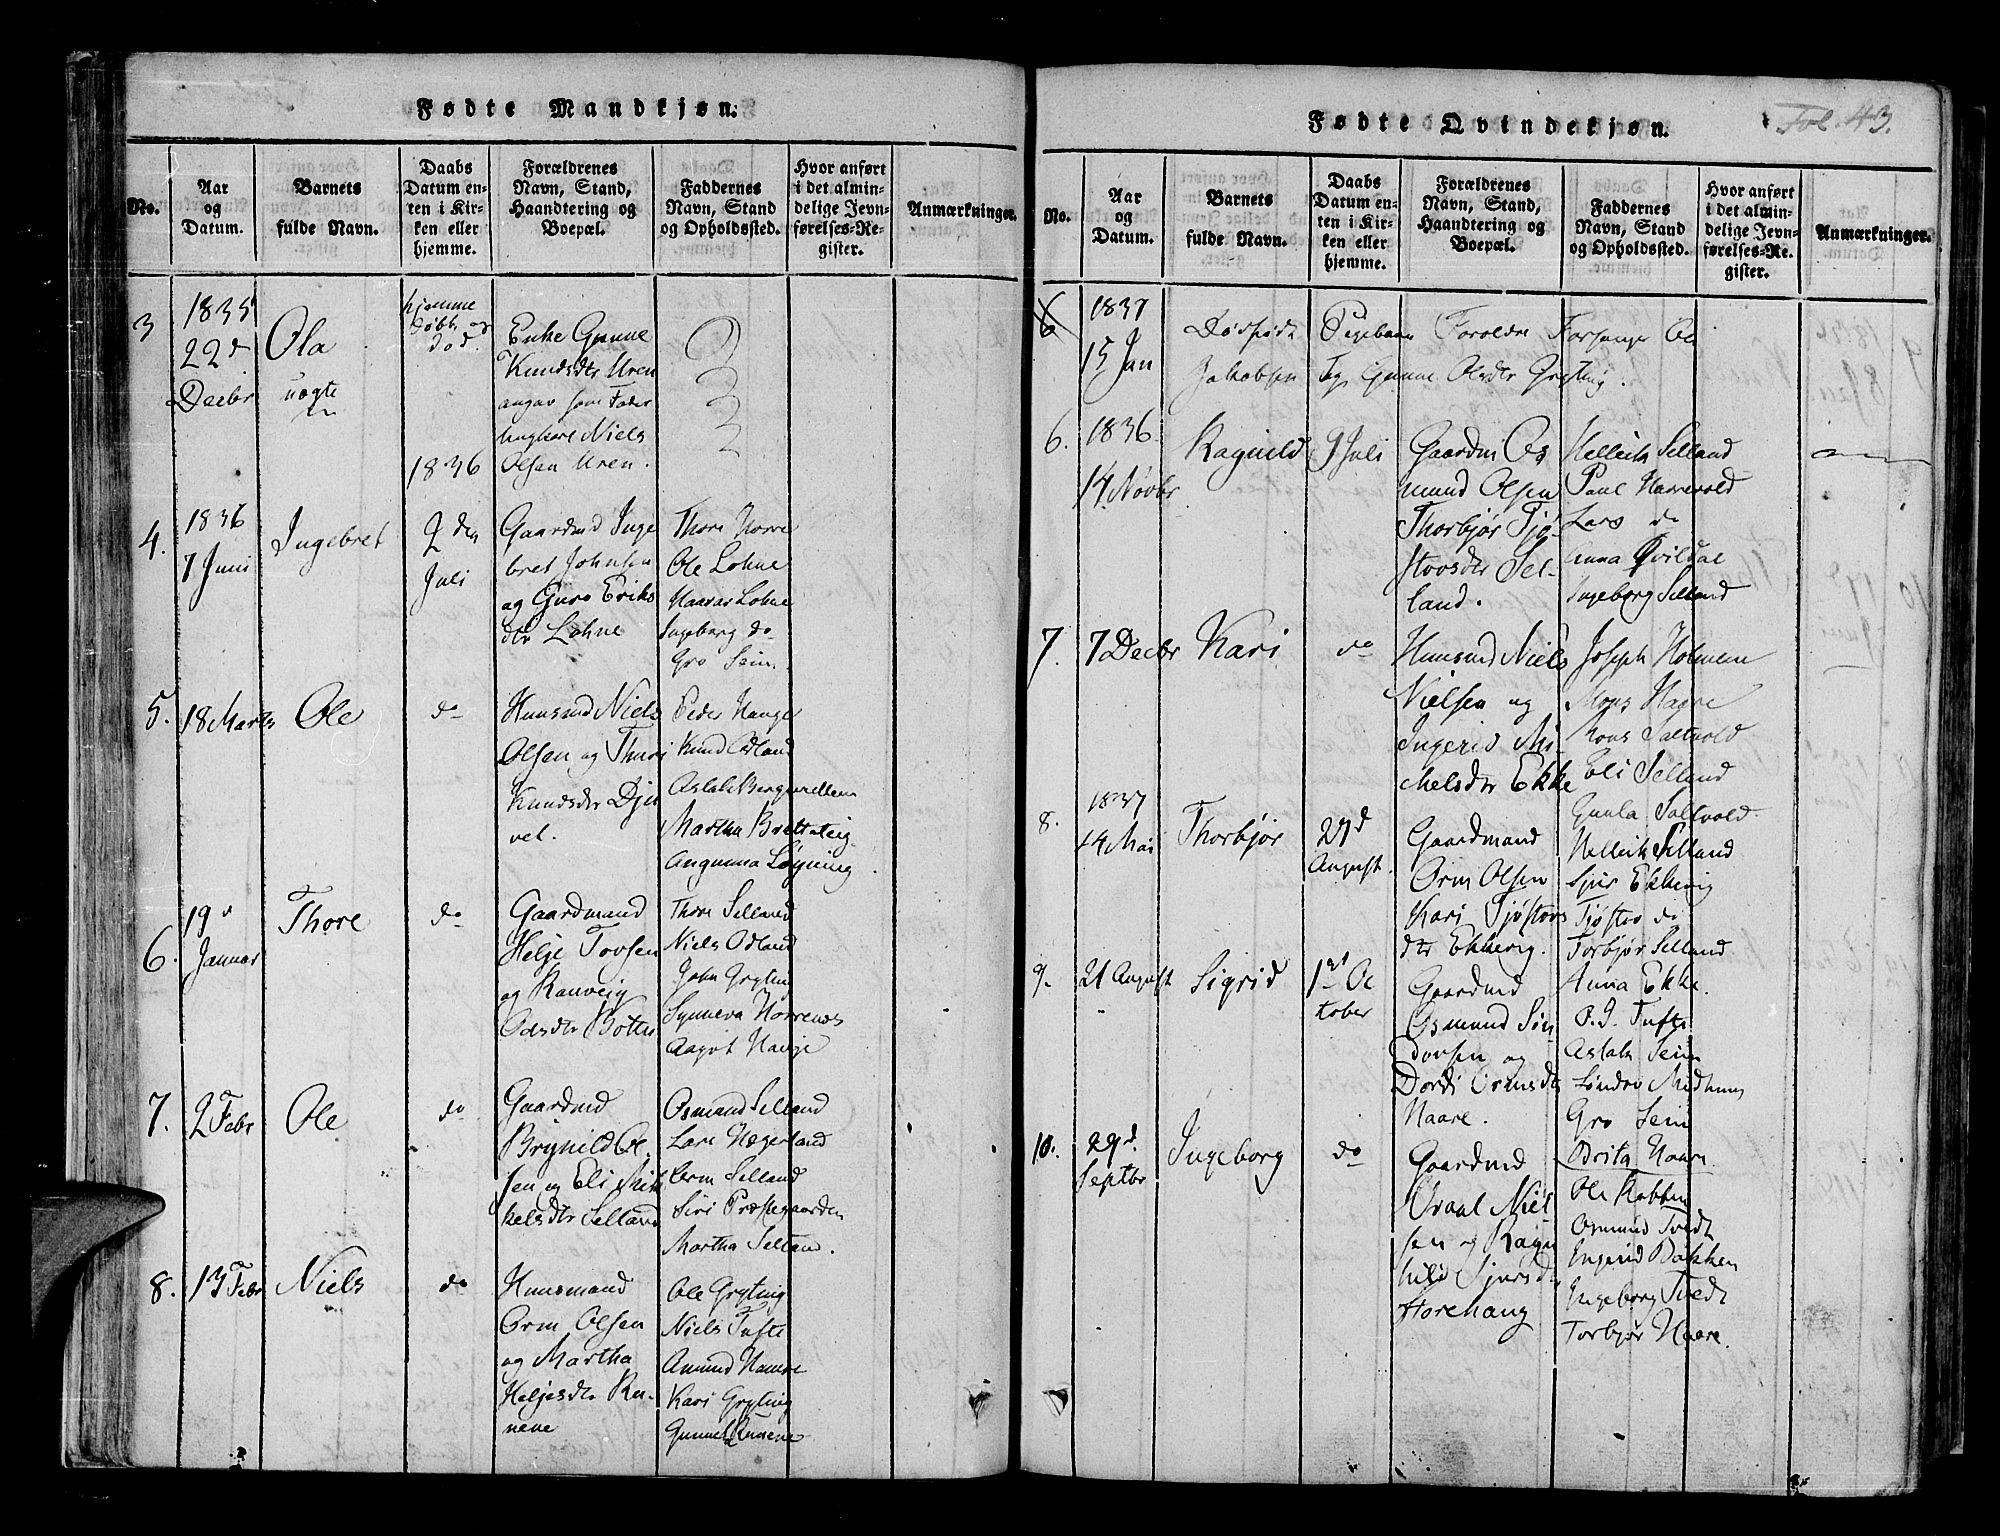 Fødte Mandkjøn.
No.
Aar
og
Datum.
Barnets
fulde Navn.
Daabs
Datum en-
ten i Kir-
ken eller
hjemme.
Forældrenes
Navn, Stand,
Haandtering og
Boepæl.
Faddernes
Navn, Stand
og Opholdssted.
Hvor anført
i det almin-
delige Jevn-
førelses-Re-
gister.
Anmærkninger.
3
1835
22d
Decbr
Ola
uægte
hjemme
døbt og
død.
Enke Gunne
Knudsdtr Uren
angav som Fader
Niels
Olsen Uren.
1836
4.
1836
7 Juni
Ingebret
2 den
Juli
Gaardmd Inge
bret Johnsen
og Guro Eriks
dtr Lohne
Thore Horre
Ole Lohne
Haavar Lohne
Ingeborg do
Gro Seim.
5.
18 Marts
Ole
do
Huusmd Niels
Olsen og Thuri
Knudsdtr Dju
vet.
Peder Hauge
Knud Odland
Aslak
Martha Bratteteig
Angunna Løyning.
6.
19d
Januar
Thore
do
Gaardmand
Helje Tovsen
og Ranveig
Odsdtr Botten
Thore Selland
Niels Odland
John Gryting
Synneva Horrenes
Aagot Hauge
7.
2 Febr
Ole
do
Gaardmd
Brynild Ol
sen og Eli Mik
kelsdtr Selland
Osmund Selland
Lars Hægerland
Orm Selland
Siri Præstegaarden
Martha Selland.
8.
13 Febr
Niels
do
Huusmand
Orm Olsen
og Martha
Heljesdtr Ru-
nene
Ole Gryting
Niels Tufte
Amund Haare
Kari Gryting
Gunnel Runene
Fødte Qvindekjøn.
Fol. 43.
No.
Aar
og
Datum.
Barnets
fulde Navn.
Daabs
Datum en-
ten i Kir-
ken eller
hjemme.
Forældrenes
Navn, Stand,
Haandtering og
Boepæl.
Faddernes
Navn, Stand
og Opholdssted.
Hvor anført
i det almin-
delige Jevn-
førelses-Re-
gister.
Anmærkninger.
6
1837
15 Jan
Dødfødt Pigebarn Foreldre Forsanger Ole
Jakobsen og Gunne Olsdtr Gryting.
6.
1836
14 Novbr
Ragnild
9 Juli
Gaardm Os
mund Olsen
Thorbjør Tjø-
stovsdtr Sel-
land.
Hellik Selland
Paul Havrevold
Lars do
Anna Qvildal
Ingeborg Selland
7.
7 Decbr
Kari
do
Huusmd Niels
Nielsen og
Ingerid Mi-
kelsdtr Ekke
Joseph Holmene
Mons Haare
Saltvold
Eli Selland
Gunla Saltvold.
8.
1837
14 Mai
Thorbjør
27d
August.
Gaardmand
Orm Olsen
Kari Tjøstovs
dtr Ekkerig.
Hellik Selland
Sjur Ekkerig
Tjøstov do
Torbjør Selland
Anna Ekke.
9.
21 August
Sigrid
1st Oc
tober
Gaardmd
Osmund Søn
dovsen og
Dordi Ormsdtr
Haare.
P. J. Tufte
Aslak Seim
Søndov Midtun
Gro Seim
Brita Haare
10.
29d
Septbr
Ingeborg
do
Gaardmd
Niel-
sen og Ragn
hild Sjursd.
Storehaug
Ole Rabben
Osmund Tvedt
Ingerid Bakken
Ingeborg Tvedt
Torbjør Haare.